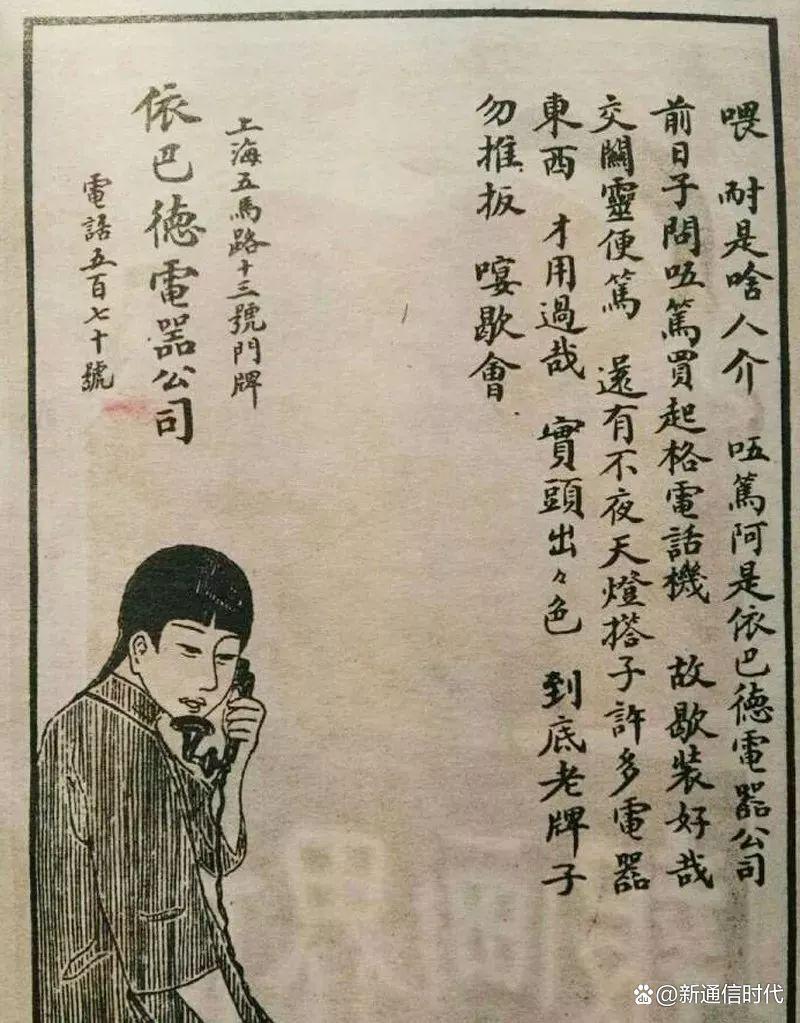 喂 耐是啥人介 唔篤阿是依巴德電器公司
前日子問唔篤買起格電話機 故歇裝好哉
交關靈便篤 還有不夜天燈搭子許多電器
東西 才用過哉 實頭出々色 到底老牌子
勿推扳 晏歇會
上海五馬路十三號門牌
依巴德電器公司
電話五百七十號
@新通信时代